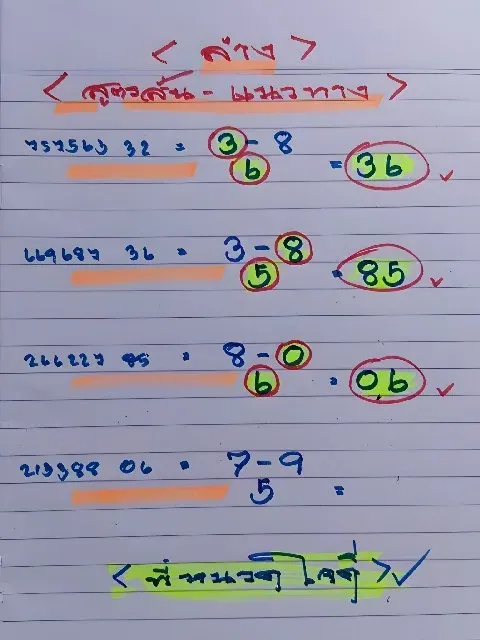 < ล่าง >
< สูตรลับ - แนวทาง >
757563 32 = 3 - 8
6 = 36
669687 36 = 3 - 8
5 = 85
266227 85 = 8 - 0
6 = 06
213388 06 = 7 - 9
5 =
< พี่หนวด ใจดี >